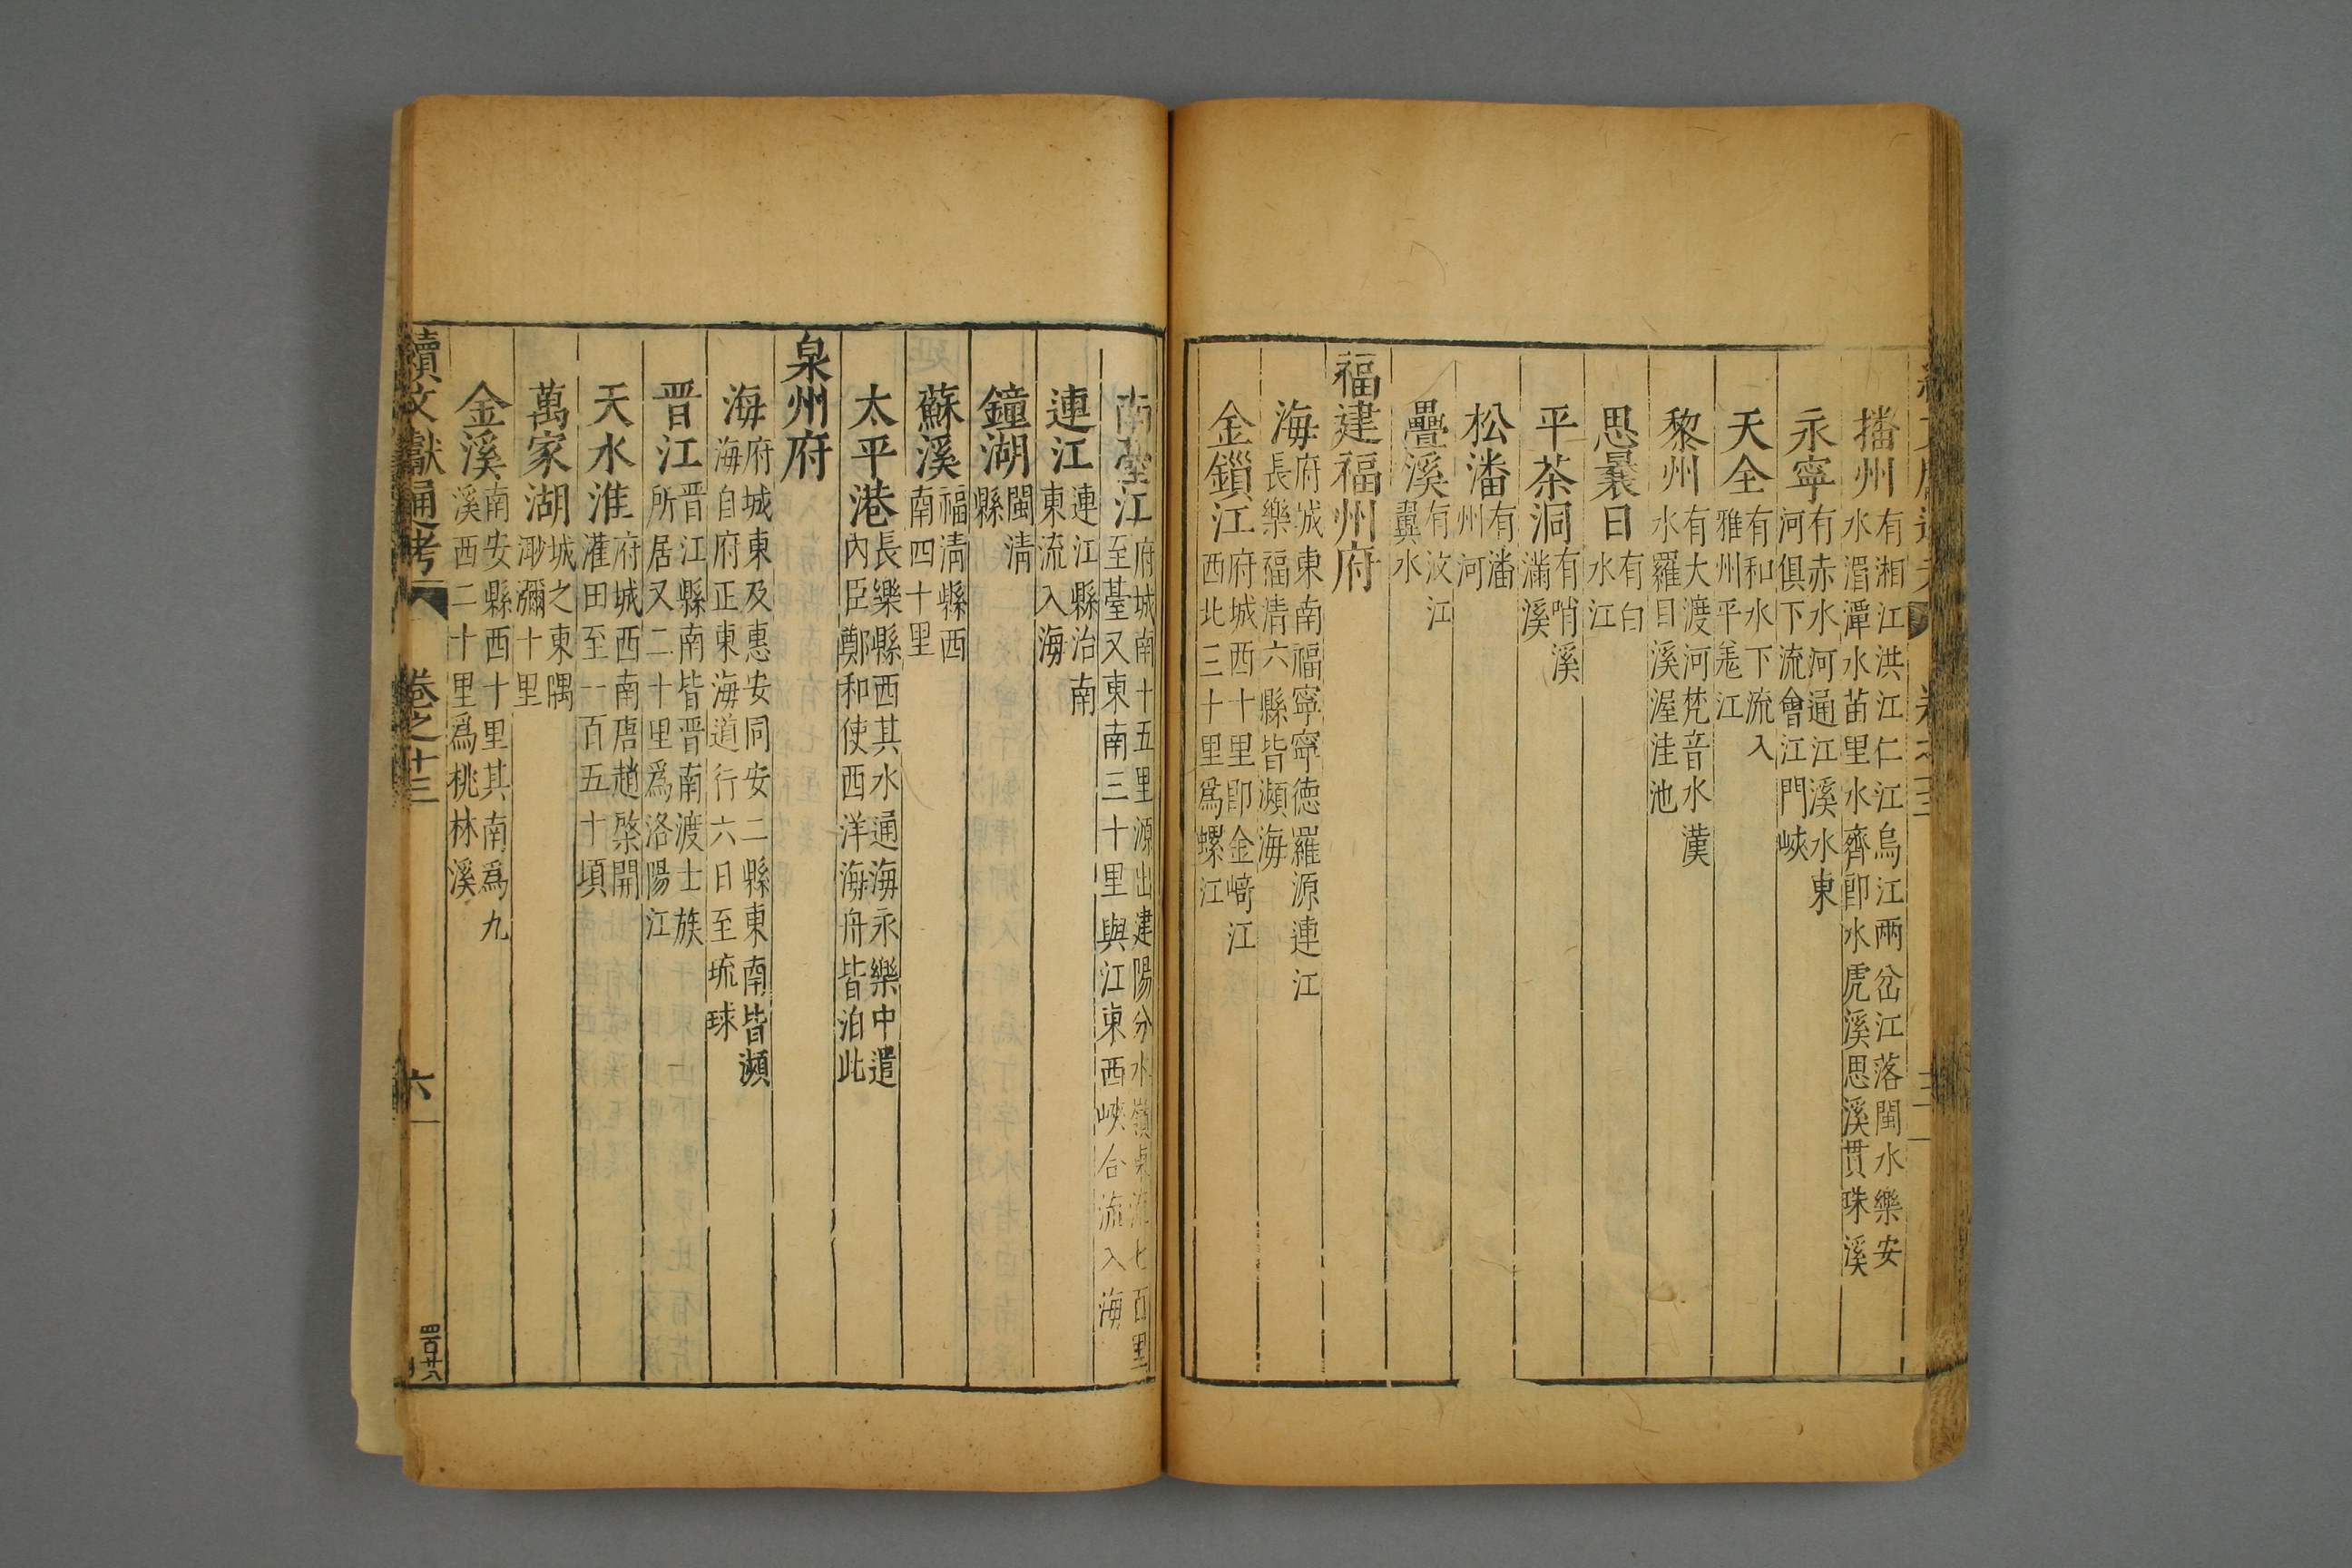 播州有湘江洪江仁江烏江兩岔江落閩水樂安
水湄潭水苗里水齊郎水虎溪思溪貫珠溪
永寧有赤水河通江溪水東
河俱下流會江門峽
天全有和水下流入
雅州平羌江
黎州有大渡河梵音水漢
水羅目溪渥洼池
思曩日有白
水江
平茶洞有哨溪
滿溪
松潘有潘
州河
疊溪有汶江
翼水
福建福州府
海府城東南福寧寧德羅源連江
長樂福清六縣皆瀕海
金鎖江府城西十里即金崎江
西北三十里爲螺江
南臺江府城南十五里源出建陽分水嶺 七百里
至臺又東南三十里與江東西峽合流入海
連江連江縣治南
東流入海
鐘湖閩清
縣
蘇溪福清縣西
南四十里
太平港長樂縣西其水通海永樂中遣
內臣鄭和使西洋海舟皆泊此
泉州府
海府城東及惠安同安二縣東南皆瀕
海自府正東海道行六日至琉球
晋江晋江縣南皆晋南渡士族
所居又二十里爲洛陽江
天水淮府城西南唐趙棨開
灌田至一百五十頃
萬家湖城之東隅
渺瀰十里
金溪南安縣西十里其南爲九
溪西二十里爲桃林溪
續文獻通考 卷之十三 六
四百廿六